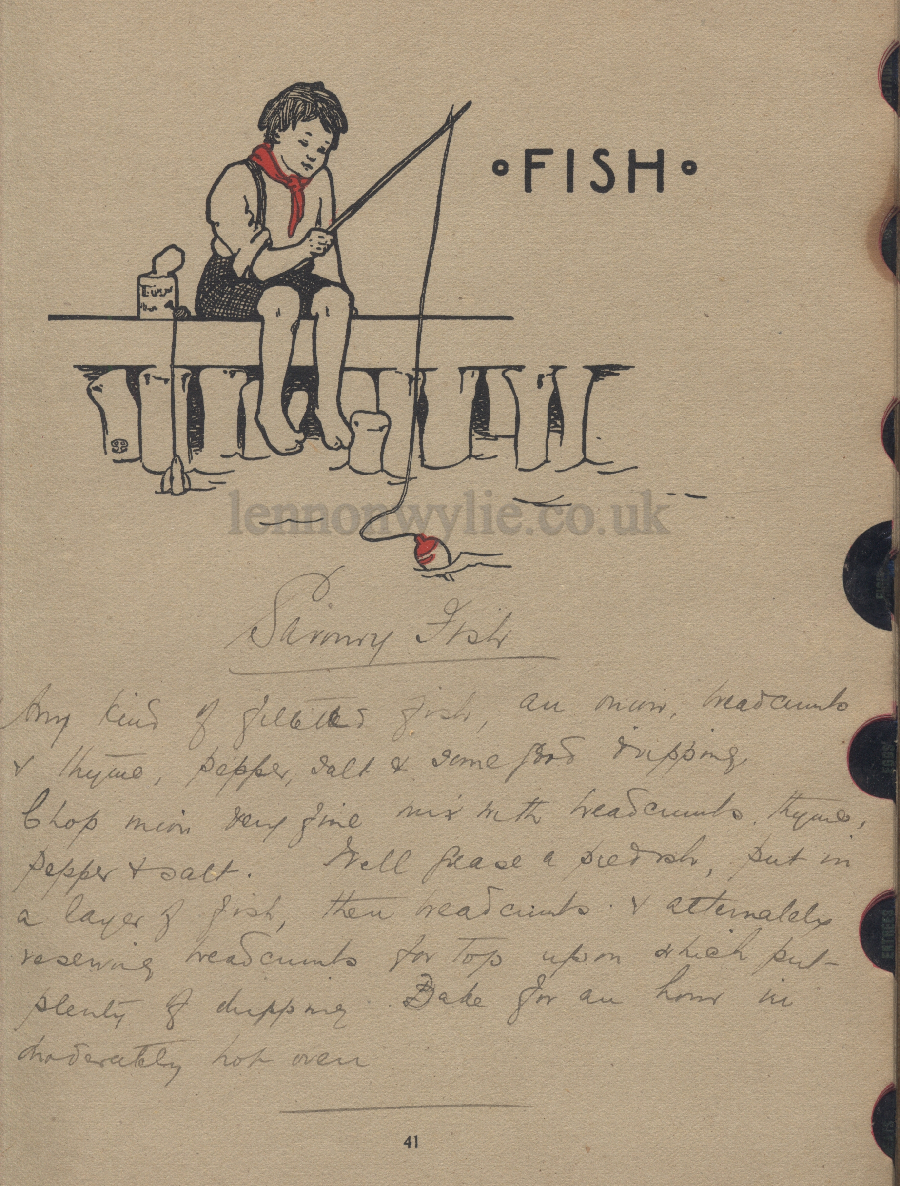 • FISH •
lennonwylie.co.uk
Savoury Fish
Any kind of filetted fish, an onion, breadcrumbs
& thyme, pepper, salt & some good dripping.
Chop onion very fine mix with breadcrumbs, thyme,
pepper & salt. Well grease a piedish, put in
a layer of fish, then breadcrumbs & alternately
reserving breadcrumbs for top upon which put
plenty of dripping. Bake for an hour in
moderately hot oven
41